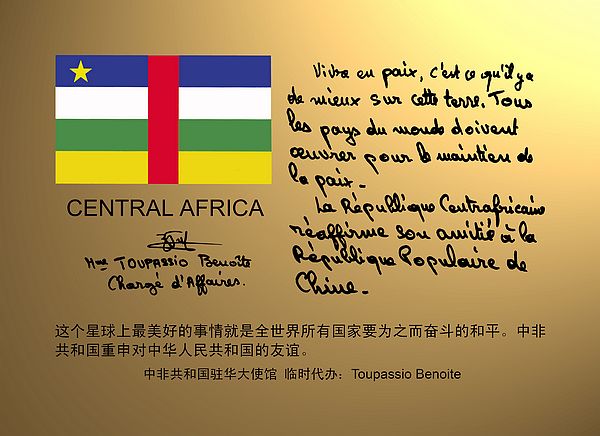 CENTRAL AFRICA
Mme TOUPASSIO Benoîte
Chargé d'Affaires.
Vivre en paix, c'est ce qu'il y a
de mieux sur cette terre. Tous
les pays du monde doivent
œuvrer pour le maintien de
la paix.
La République Centrafricaine
réaffirme son amitié à la
République Populaire de
Chine.
这个星球上最美好的事情就是全世界所有国家要为之而奋斗的和平。中非
共和国重申对中华人民共和国的友谊。
中非共和国驻华大使馆 临时代办：Toupassio Benoite